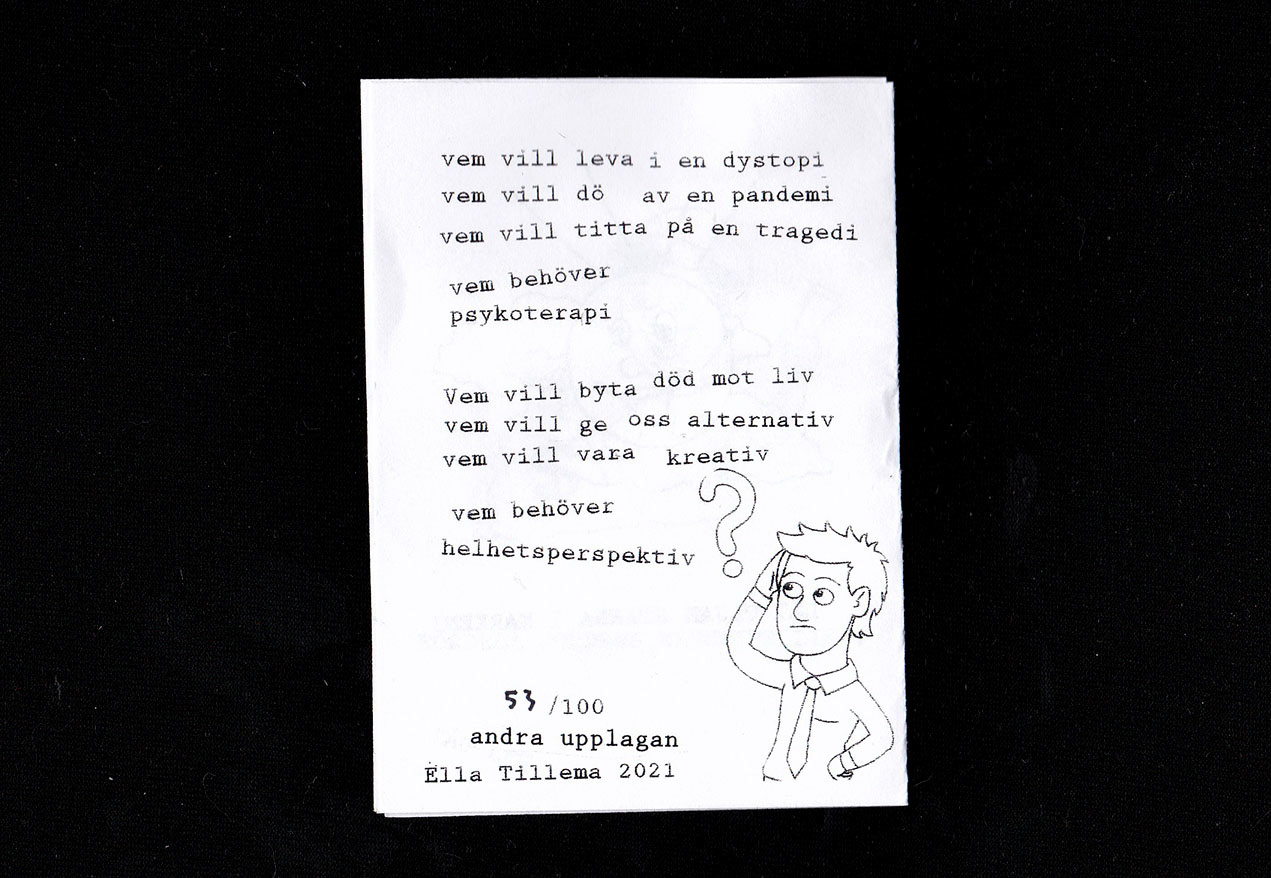 vem vill leva i en dystopi
vem vill dö av en pandemi
vem vill titta på en tragedi
vem behöver
psykoterapi
Vem vill byta död mot liv
vem vill ge oss alternativ
vem vill vara kreativ
vem behöver
helhetsperspektiv
?
53/100
andra upplagan
Ella Tillema 2021